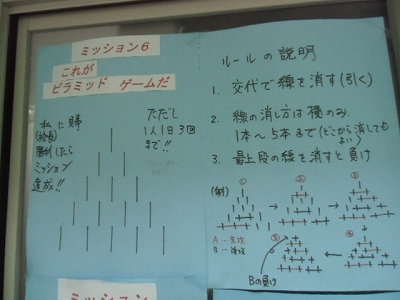 ミッション6
これが
ピラミッド ゲームだ
私に
勝利したら
ミッション
達成!!
ただし
1人1日3回
まで!!
ルールの説明
1. 交代で線を消す(引く)
2. 線の消し方は横のみ。
1本〜5本まで(どこから消しても
よい)
3. 最上段の線を消すと負け
(例)
①
②
③
④
⑤
A…先攻
B…後攻
Bの負け
ミッション